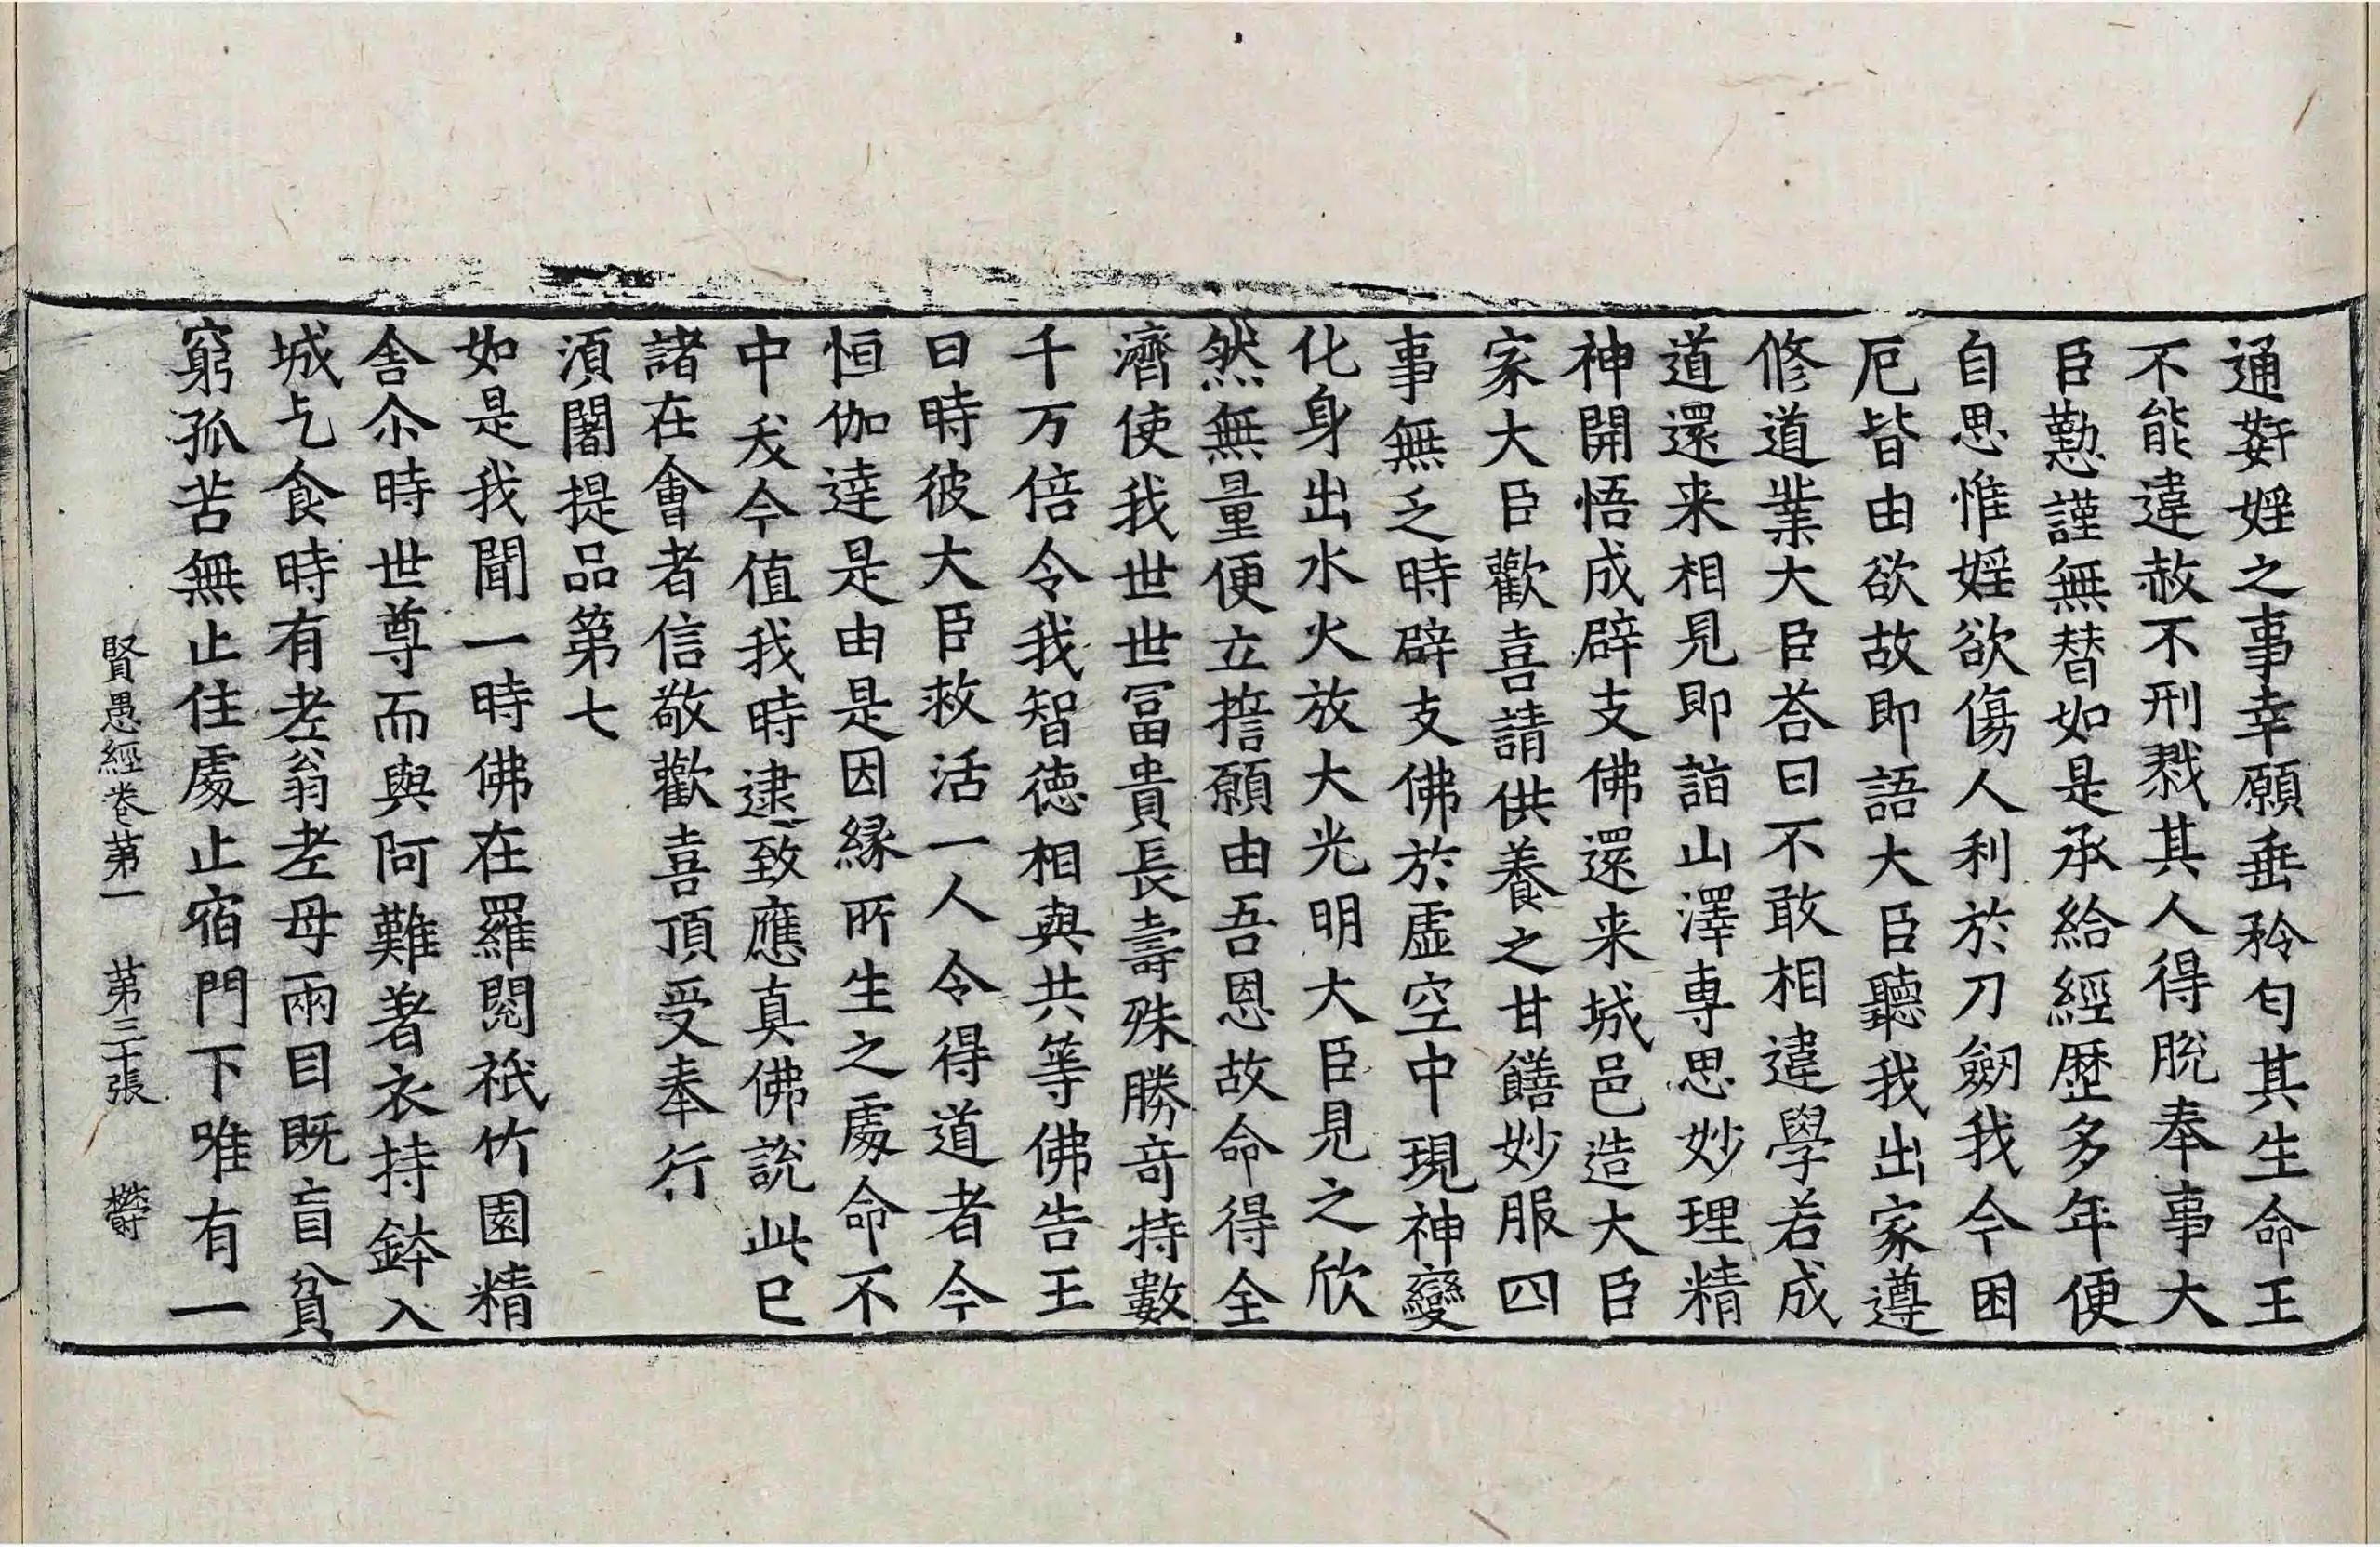 通姧婬之事幸願垂矜匃其生命王
不能違赦不刑戮其人得脫奉事大
臣懃謹無替如是承給經歷多年便
自思惟婬欲傷人利於刀劒我今困
厄皆由欲故即語大臣聽我出家遵
修道業大臣荅曰不敢相違學若成
道還来相見即詣山澤專思妙理精
神開悟成辟支佛還来城邑造大臣
家大臣歡喜請供養之甘饍妙服四
事無乏時辟支佛於虛空中現神變
化身出水火放大光明大臣見之欣
然無量便立誓願由吾恩故命得全
濟使我世世冨貴長壽殊勝奇持數
千万倍令我智德相與共等佛告王
曰時彼大臣救活一人令得道者今
恒伽達是由是因緣所生之處命不
中夭今值我時逮致應真佛說此已
諸在會者信敬歡喜頂受奉行
湏闍提品第七
如是我聞一時佛在羅閱祇竹園精
舍尒時世尊而與阿難著衣持鉢入
城乞食時有老翁老母兩目既盲貧
窮孤苦無止住處止宿門下唯有一
賢愚經卷第一 第三十張 欝